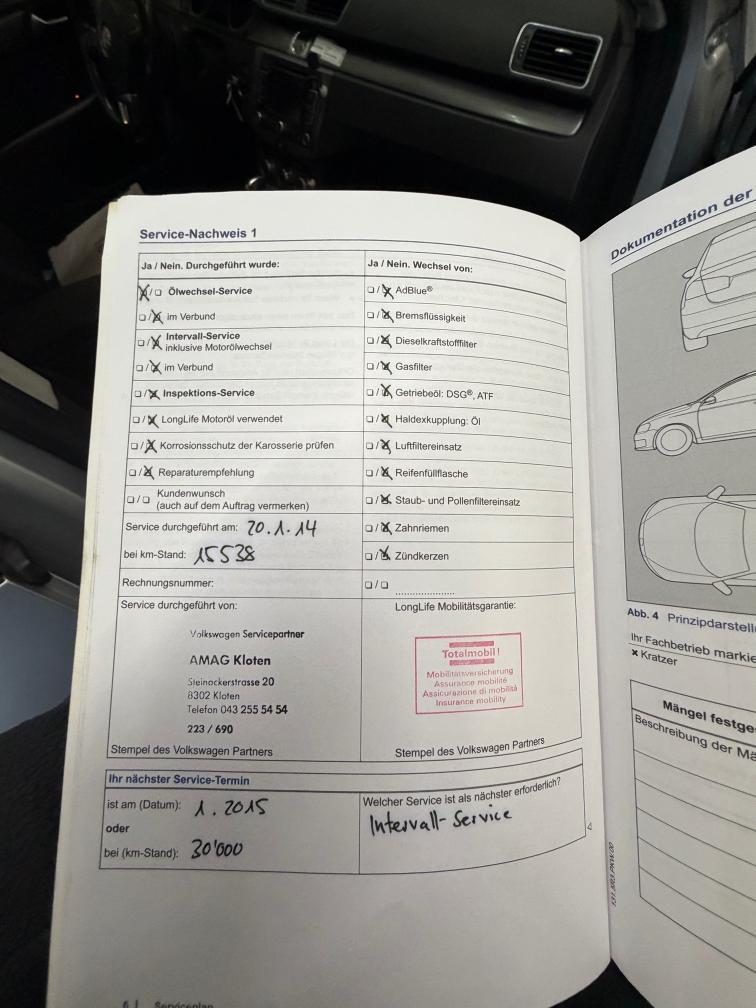 Service-Nachweis 1
Ja / Nein. Durchgeführt wurde:
☒/☐ Ölwechsel-Service
☐/☒ im Verbund
☐/☒ Intervall-Service
inklusive Motorölwechsel
☐/☒ im Verbund
☐/☒ Inspektions-Service
☐/☒ LongLife Motoröl verwendet
☐/☒ Korrosionsschutz der Karosserie prüfen
☐/☒ Reparaturempfehlung
☐/☐ Kundenwunsch
(auch auf dem Auftrag vermerken)
Service durchgeführt am: 20.1.14
bei km-Stand: 15538
Rechnungsnummer:
Service durchgeführt von:
Volkswagen Servicepartner
AMAG Kloten
Steinackerstrasse 20
8302 Kloten
Telefon 043 255 54 54
223 / 690
Stempel des Volkswagen Partners
Ja / Nein. Wechsel von:
☐/☒ AdBlue®
☐/☒ Bremsflüssigkeit
☐/☒ Dieselkraftstofffilter
☐/☒ Gasfilter
☐/☒ Getriebeöl: DSG®, ATF
☐/☒ Haldexkupplung: Öl
☐/☒ Luftfiltereinsatz
☐/☒ Reifenfüllflasche
☐/☒ Staub- und Pollenfiltereinsatz
☐/☒ Zahnriemen
☐/☒ Zündkerzen
☐/☐ ......................
LongLife Mobilitätsgarantie:
Totalmobil!
Mobilitätsversicherung
Assurance mobilité
Assicurazione di mobilità
Insurance mobility
Stempel des Volkswagen Partners
Ihr nächster Service-Termin
ist am (Datum): 1.2015
oder
bei (km-Stand): 30'000
Welcher Service ist als nächster erforderlich?
Intervall-Service
6 | Serviceplan
Dokumentation der
Abb. 4 Prinzipdarstell
Ihr Fachbetrieb markie
× Kratzer
Mängel festge
Beschreibung der Mä